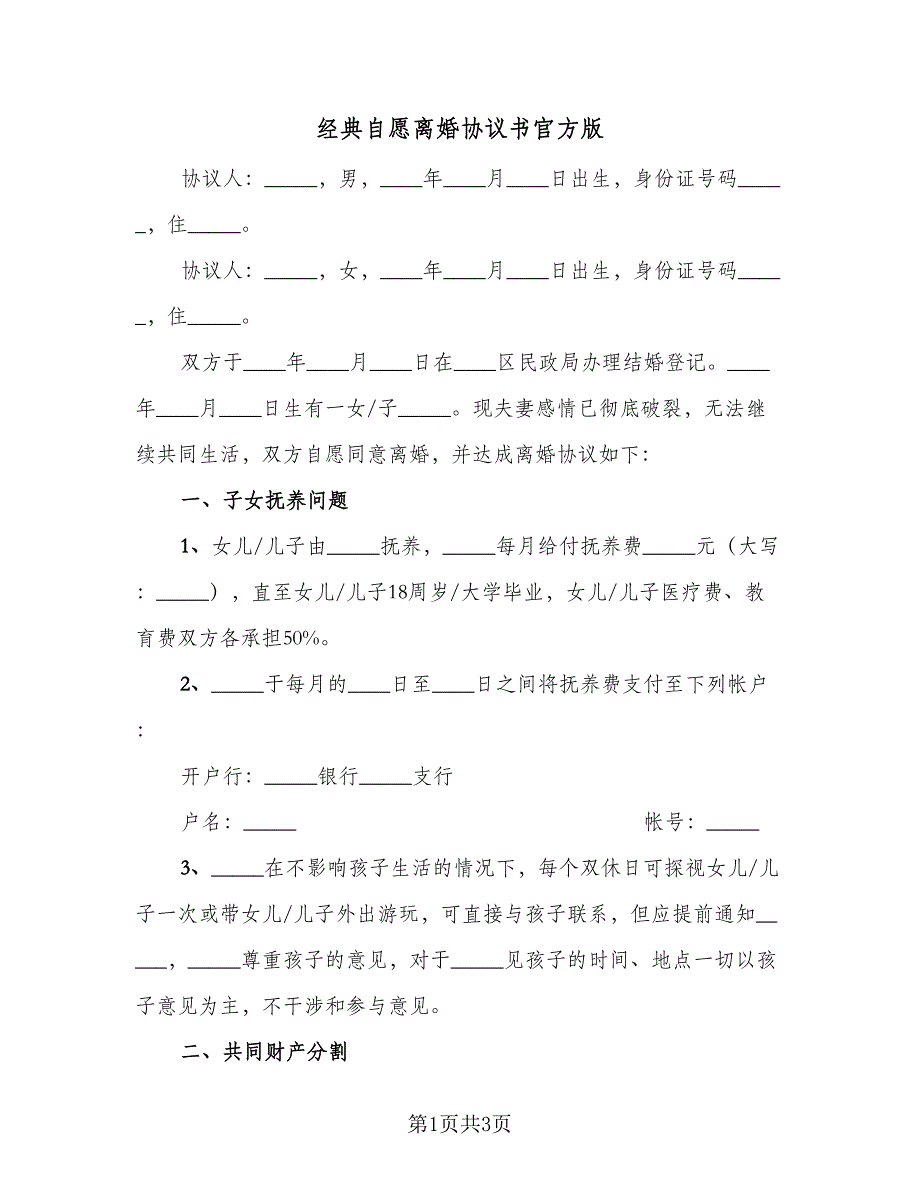 经典自愿离婚协议书官方版
协议人：_____，男，____年____月____日出生，身份证号码____
_，住_____。
协议人：_____，女，____年____月____日出生，身份证号码____
_，住_____。
双方于____年____月____日在____区民政局办理结婚登记。____
年____月____日生有一女/子_____。现夫妻感情已彻底破裂，无法继
续共同生活，双方自愿同意离婚，并达成离婚协议如下：
一、子女抚养问题
1、女儿/儿子由_____抚养，_____每月给付抚养费_____元（大写
：_____），直至女儿/儿子18周岁/大学毕业，女儿/儿子医疗费、教
育费双方各承担50%。
2、_____于每月的____日至____日之间将抚养费支付至下列帐户
：
开户行：_____银行_____支行
户名：_____ 帐号：_____
3、_____在不影响孩子生活的情况下，每个双休日可探视女儿/儿
子一次或带女儿/儿子外出游玩，可直接与孩子联系，但应提前通知__
___，_____尊重孩子的意见，对于_____见孩子的时间、地点一切以孩
子意见为主，不干涉和参与意见。
二、共同财产分割
第1页共3页